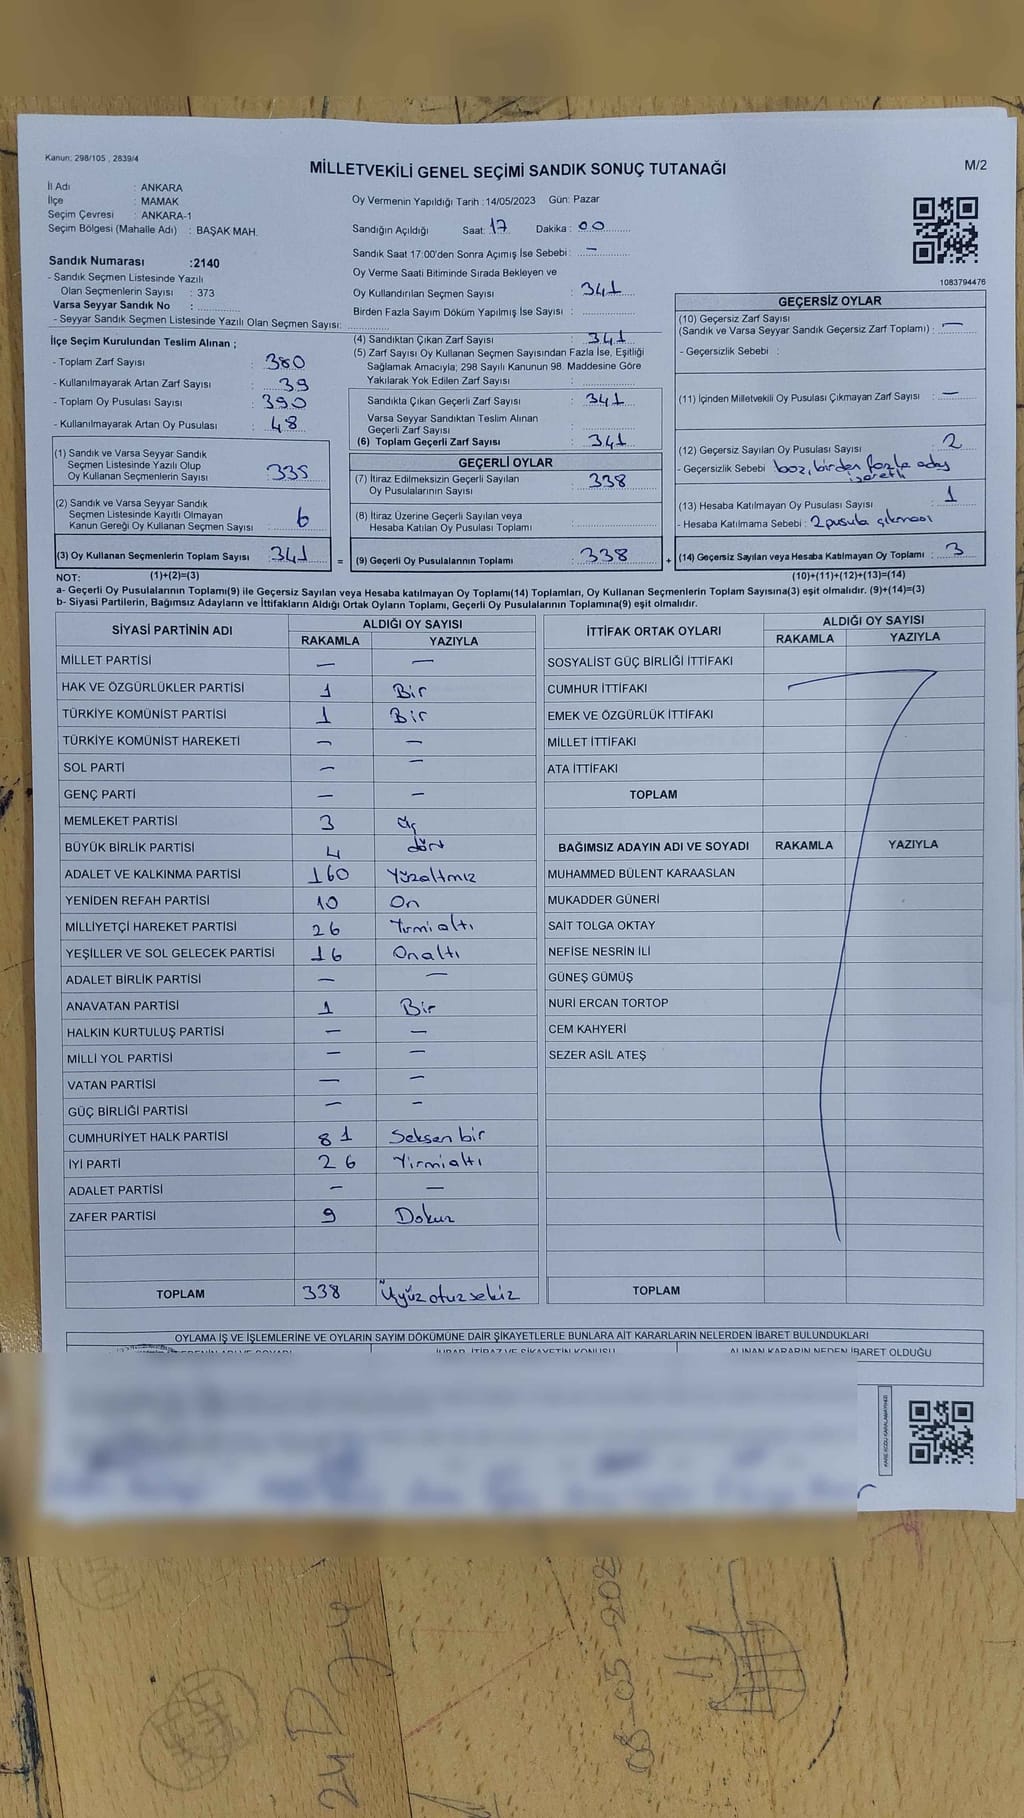 Kanun: 298/105 , 2839/4
MİLLETVEKİLİ GENEL SEÇİMİ SANDIK SONUÇ TUTANAĞI
M/2
İl Adı : ANKARA
İlçe : MAMAK
Seçim Çevresi : ANKARA-1
Seçim Bölgesi (Mahalle Adı) : BAŞAK MAH.
Sandık Numarası :2140
- Sandık Seçmen Listesinde Yazılı
Olan Seçmenlerin Sayısı : 373
Varsa Seyyar Sandık No :
- Seyyar Sandık Seçmen Listesinde Yazılı Olan Seçmen Sayısı:
İlçe Seçim Kurulundan Teslim Alınan ;
- Toplam Zarf Sayısı : 380
- Kullanılmayarak Artan Zarf Sayısı : 39
- Toplam Oy Pusulası Sayısı : 390
- Kullanılmayarak Artan Oy Pusulası : 48
(1) Sandık ve Varsa Seyyar Sandık
Seçmen Listesinde Yazılı Olup
Oy Kullanan Seçmenlerin Sayısı : 335
(2) Sandık ve Varsa Seyyar Sandık
Seçmen Listesinde Kayıtlı Olmayan
Kanun Gereği Oy Kullanan Seçmen Sayısı : 6
(3) Oy Kullanan Seçmenlerin Toplam Sayısı : 341 =
Oy Vermenin Yapıldığı Tarih : 14/05/2023 Gün: Pazar
Sandığın Açıldığı Saat: 17 Dakika : 00
Sandık Saat 17:00'den Sonra Açımış İse Sebebi : —
Oy Verme Saati Bitiminde Sırada Bekleyen ve
Oy Kullandırılan Seçmen Sayısı : 341
Birden Fazla Sayım Döküm Yapılmış İse Sayısı :
(4) Sandıktan Çıkan Zarf Sayısı : 341
(5) Zarf Sayısı Oy Kullanan Seçmen Sayısından Fazla İse, Eşitliği
Sağlamak Amacıyla; 298 Sayılı Kanunun 98. Maddesine Göre
Yakılarak Yok Edilen Zarf Sayısı :
Sandıkta Çıkan Geçerli Zarf Sayısı : 341
Varsa Seyyar Sandıktan Teslim Alınan
Geçerli Zarf Sayısı :
(6) Toplam Geçerli Zarf Sayısı : 341
GEÇERLİ OYLAR
(7) İtiraz Edilmeksizin Geçerli Sayılan
Oy Pusulalarının Sayısı : 338
(8) İtiraz Üzerine Geçerli Sayılan veya
Hesaba Katılan Oy Pusulası Toplamı :
(9) Geçerli Oy Pusulalarının Toplamı : 338 +
1083794476
GEÇERSİZ OYLAR
(10) Geçersiz Zarf Sayısı
(Sandık ve Varsa Seyyar Sandık Geçersiz Zarf Toplamı) : —
- Geçersizlik Sebebi :
(11) İçinden Milletvekili Oy Pusulası Çıkmayan Zarf Sayısı : —
(12) Geçersiz Sayılan Oy Pusulası Sayısı : 2
- Geçersizlik Sebebi boz, birden fazla aday
işaretli
(13) Hesaba Katılmayan Oy Pusulası Sayısı : 1
- Hesaba Katılmama Sebebi : 2 pusula çıkması
(14) Geçersiz Sayılan veya Hesaba Katılmayan Oy Toplamı : 3
NOT: (1)+(2)=(3) (10)+(11)+(12)+(13)=(14)
a- Geçerli Oy Pusulalarının Toplamı(9) ile Geçersiz Sayılan veya Hesaba katılmayan Oy Toplamı(14) Toplamları, Oy Kullanan Seçmenlerin Toplam Sayısına(3) eşit olmalıdır. (9)+(14)=(3)
b- Siyasi Partilerin, Bağımsız Adayların ve İttifakların Aldığı Ortak Oyların Toplamı, Geçerli Oy Pusulalarının Toplamına(9) eşit olmalıdır.
SİYASİ PARTİNİN ADI ALDIĞI OY SAYISI
RAKAMLA YAZIYLA
MİLLET PARTİSİ — —
HAK VE ÖZGÜRLÜKLER PARTİSİ 1 Bir
TÜRKİYE KOMÜNİST PARTİSİ 1 Bir
TÜRKİYE KOMÜNİST HAREKETİ — —
SOL PARTİ — —
GENÇ PARTİ — —
MEMLEKET PARTİSİ 3 üç
BÜYÜK BİRLİK PARTİSİ 4 dört
ADALET VE KALKINMA PARTİSİ 160 Yüzaltmız
YENİDEN REFAH PARTİSİ 10 On
MİLLİYETÇİ HAREKET PARTİSİ 26 Yirmialtı
YEŞİLLER VE SOL GELECEK PARTİSİ 16 Onaltı
ADALET BİRLİK PARTİSİ — —
ANAVATAN PARTİSİ 1 Bir
HALKIN KURTULUŞ PARTİSİ — —
MİLLİ YOL PARTİSİ — —
VATAN PARTİSİ — —
GÜÇ BİRLİĞİ PARTİSİ — —
CUMHURİYET HALK PARTİSİ 81 Seksen bir
İYİ PARTİ 26 Yirmialtı
ADALET PARTİSİ — —
ZAFER PARTİSİ 9 Dokuz
TOPLAM 338 Üçyüzotuzsekiz
İTTİFAK ORTAK OYLARI ALDIĞI OY SAYISI
RAKAMLA YAZIYLA
SOSYALİST GÜÇ BİRLİĞİ İTTİFAKI
CUMHUR İTTİFAKI
EMEK VE ÖZGÜRLÜK İTTİFAKI
MİLLET İTTİFAKI
ATA İTTİFAKI
TOPLAM
BAĞIMSIZ ADAYIN ADI VE SOYADI RAKAMLA YAZIYLA
MUHAMMED BÜLENT KARAASLAN
MUKADDER GÜNERİ
SAİT TOLGA OKTAY
NEFİSE NESRİN İLİ
GÜNEŞ GÜMÜŞ
NURİ ERCAN TORTOP
CEM KAHYERİ
SEZER ASİL ATEŞ
TOPLAM
OYLAMA İŞ VE İŞLEMLERİNE VE OYLARIN SAYIM DÖKÜMÜNE DAİR ŞİKAYETLERLE BUNLARA AİT KARARLARIN NELERDEN İBARET BULUNDUKLARI
İHBAR, İTİRAZ VE ŞİKAYETİN KONUSU ALINAN KARARIN NEDEN İBARET OLDUĞU
KARE KODU KARALAMAYINIZ
24D
08-05-202